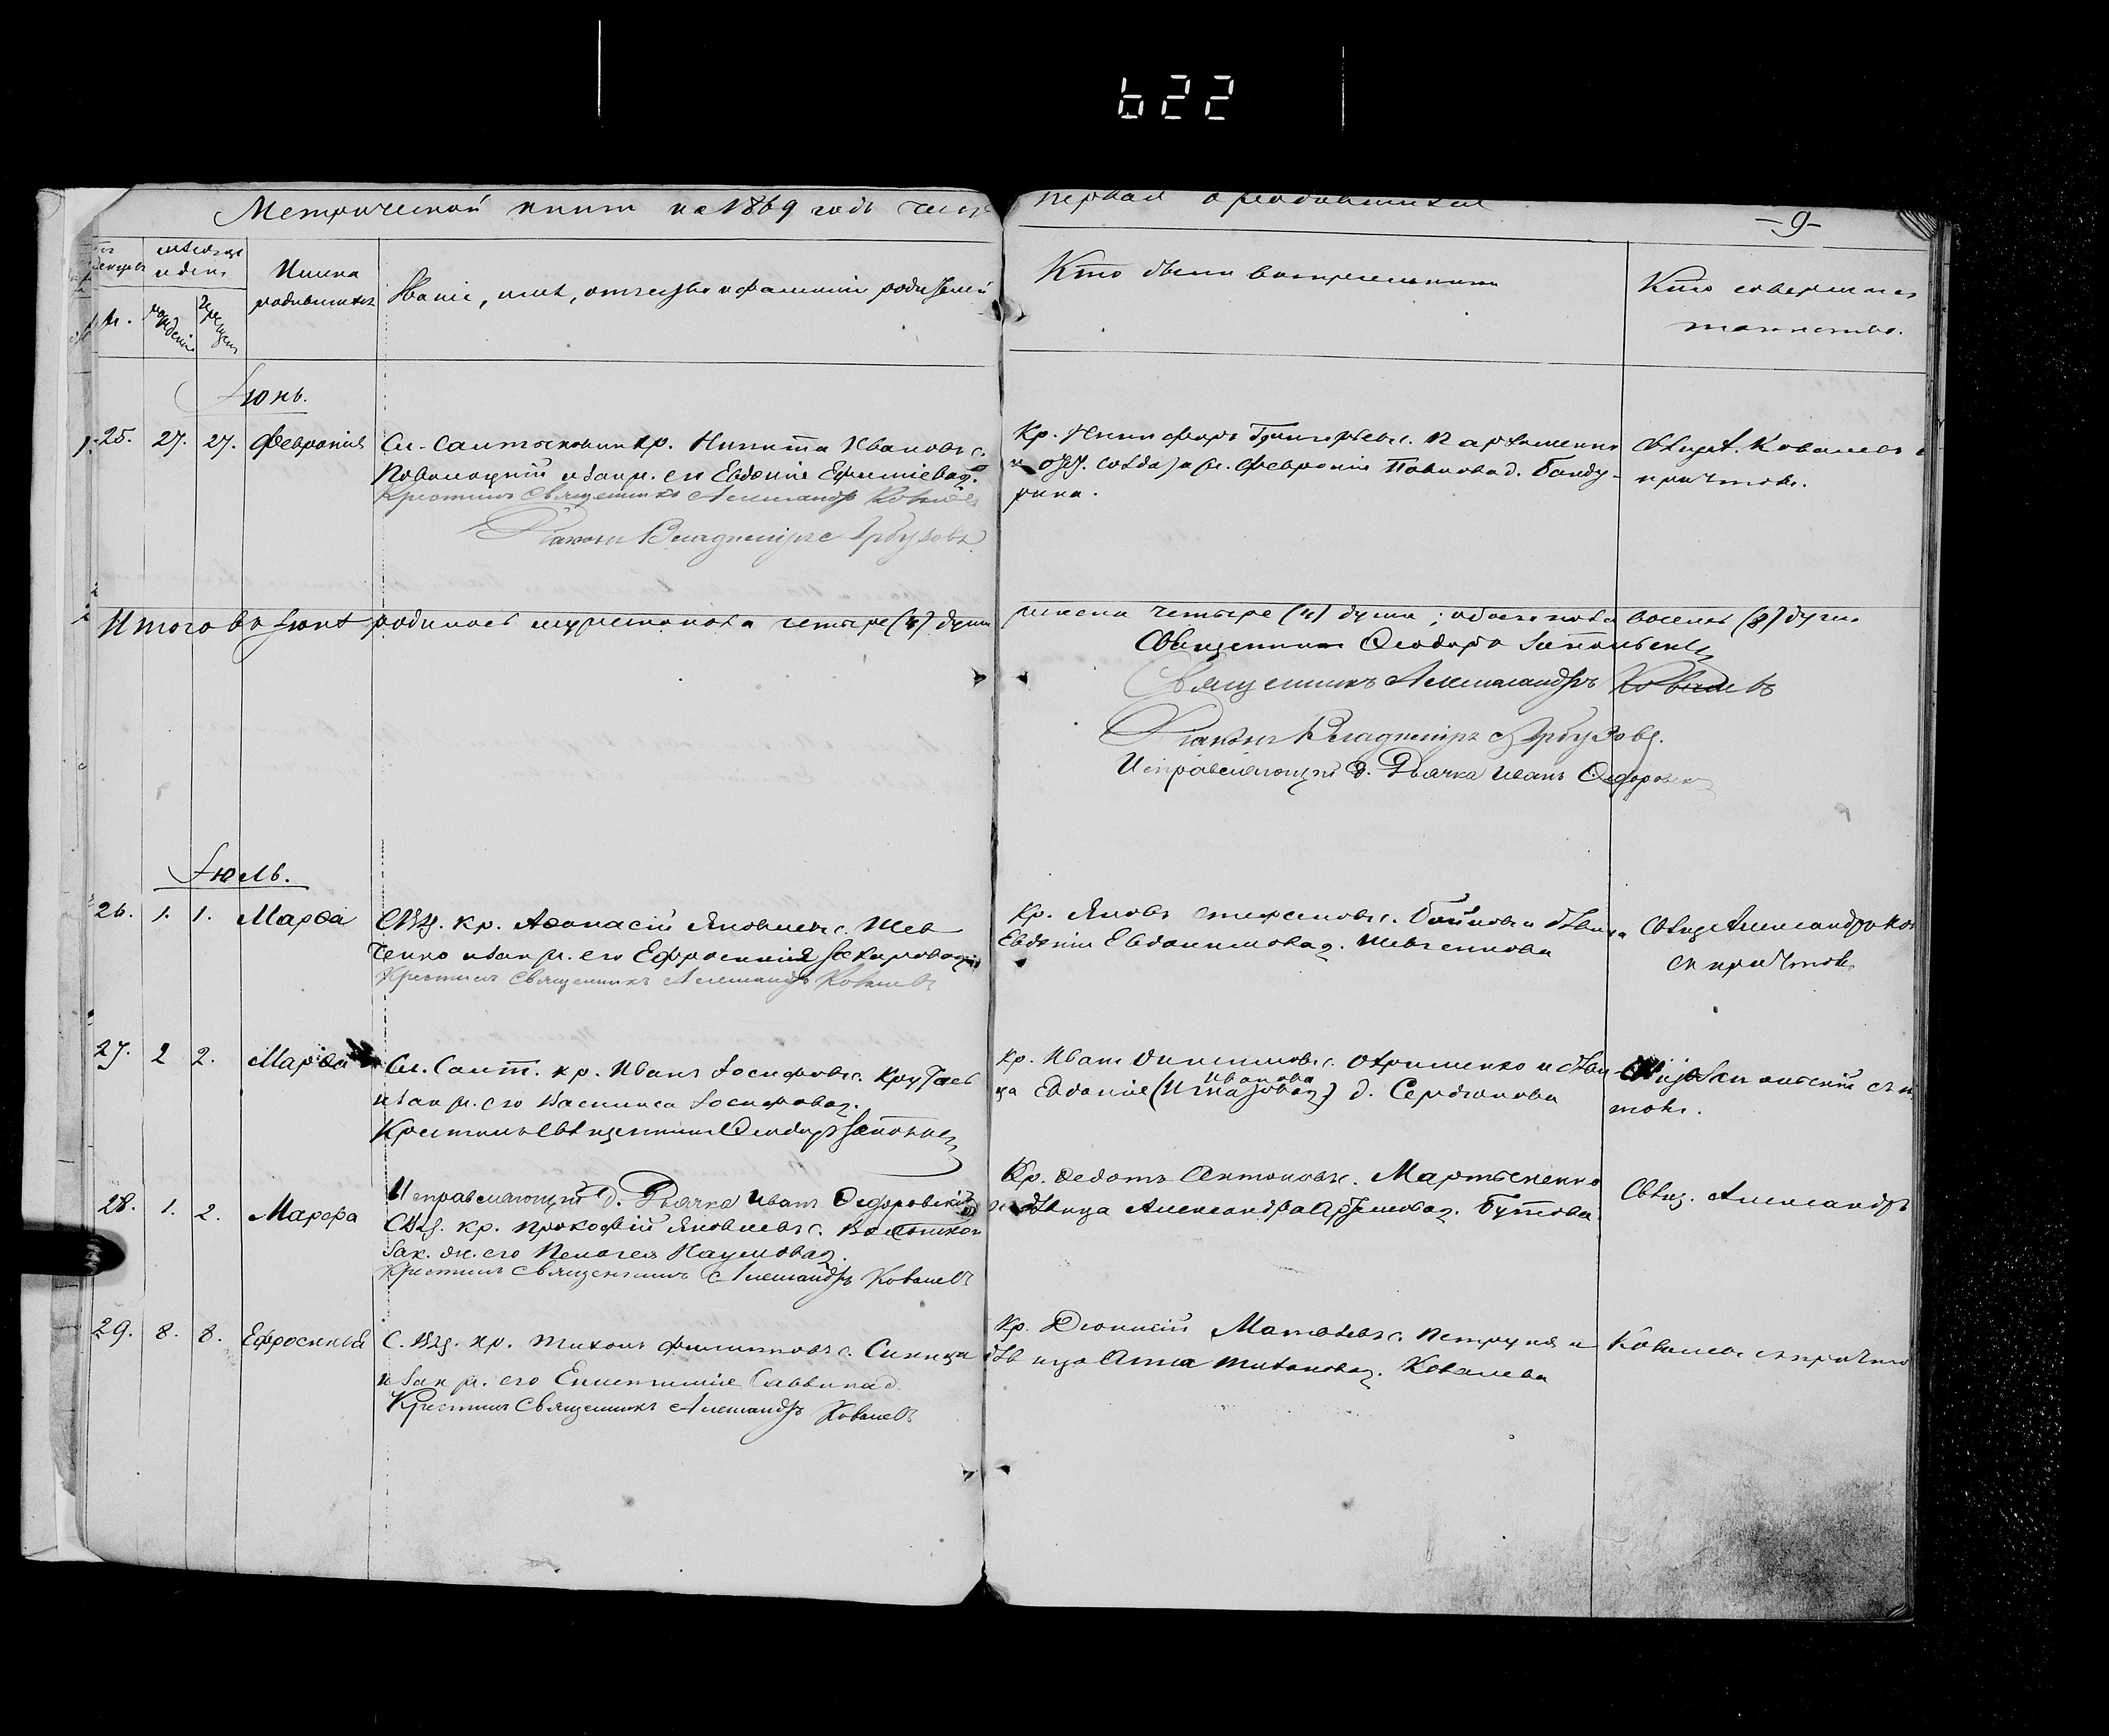 622
Метрической книги на 1869 годъ часть первая о родившихся
-9-
мѣсяцъ и день
рожденія
крещен
Имена родившихся
Званіе, имя, отчество и фамилія родителей
Кто были воспріемники
Кто совершалъ таинство.
Іюнь.
25. 27. 27. Февронія
Сл. Салтыковки кр. Никита Ивановъ с.
и закон. ж. его Евдокія Ефиміева д.
Крестилъ Священникъ Александръ Ковалевъ
Діаконъ Владиміръ Арбузовъ
Кр. Никифоръ Григорьевъ с. Пархоменко
и солдата ж. Февронія Павлова д. Банду-
рина.
Свящ. А. Ковалевъ с
причтом.
Итого въ Іюнѣ родилось мужеска пола четыре (4) души женска четыре (4) души; обоего пола восемь (8) душъ
Священникъ Ѳеодоръ Запольскій
Священникъ Александръ Ковалевъ
Діаконъ Владиміръ Арбузовъ.
Исправляющій д. Дьячка Иванъ Ѳедоровскій
Іюль.
26. 1. 1. Марѳа
кр. Аѳанасій Яковлевъ с. Шев
ченко и зак. ж. его Ефросинія Захарова д.
Крестилъ Священникъ Александръ Ковалевъ
Кр. Яковъ Стефановъ с. Бойковъ и дѣвица
Евдокія Евдокимова д. Шевченкова
Свящ. Александръ Ков
съ причтом.
27. 2 2. Марѳа
Сл. Салт. кр. Иванъ Іосифовъ с.
и зак. ж. его Василиса Іосифова д.
Крестилъ Священникъ Ѳеодоръ Запольскій
Кр. Иванъ с. Охрименко и дѣви-
ца Евдокія (Игнатова) Иванова д. Сердюкова
Запольскій съ п
томъ.
28. 1. 2. Марфа
Исправляющій д. Дьячка Иванъ Ѳедоровскій
кр. Прокофій Яковлевъ с.
Зак. ж. его Пелагея Наумова д.
Крестилъ Священникъ Александръ Ковалевъ
Кр. Ѳедотъ Антоновъ с. Мартыненко
и дѣвица Александра Артемова д. Бутова.
Свящ. Александръ
29. 8. 8. Ефросинья
кр. Тихонъ Филиповъ с. Синица
и Зак. ж. его Саввина д.
Крестилъ Священникъ Александръ Ковалевъ
Кр. Діонисій Матвѣевъ с. Петруня и
дѣвица Анна Тихонова д. Ковалева
Ковалевъ съ причто